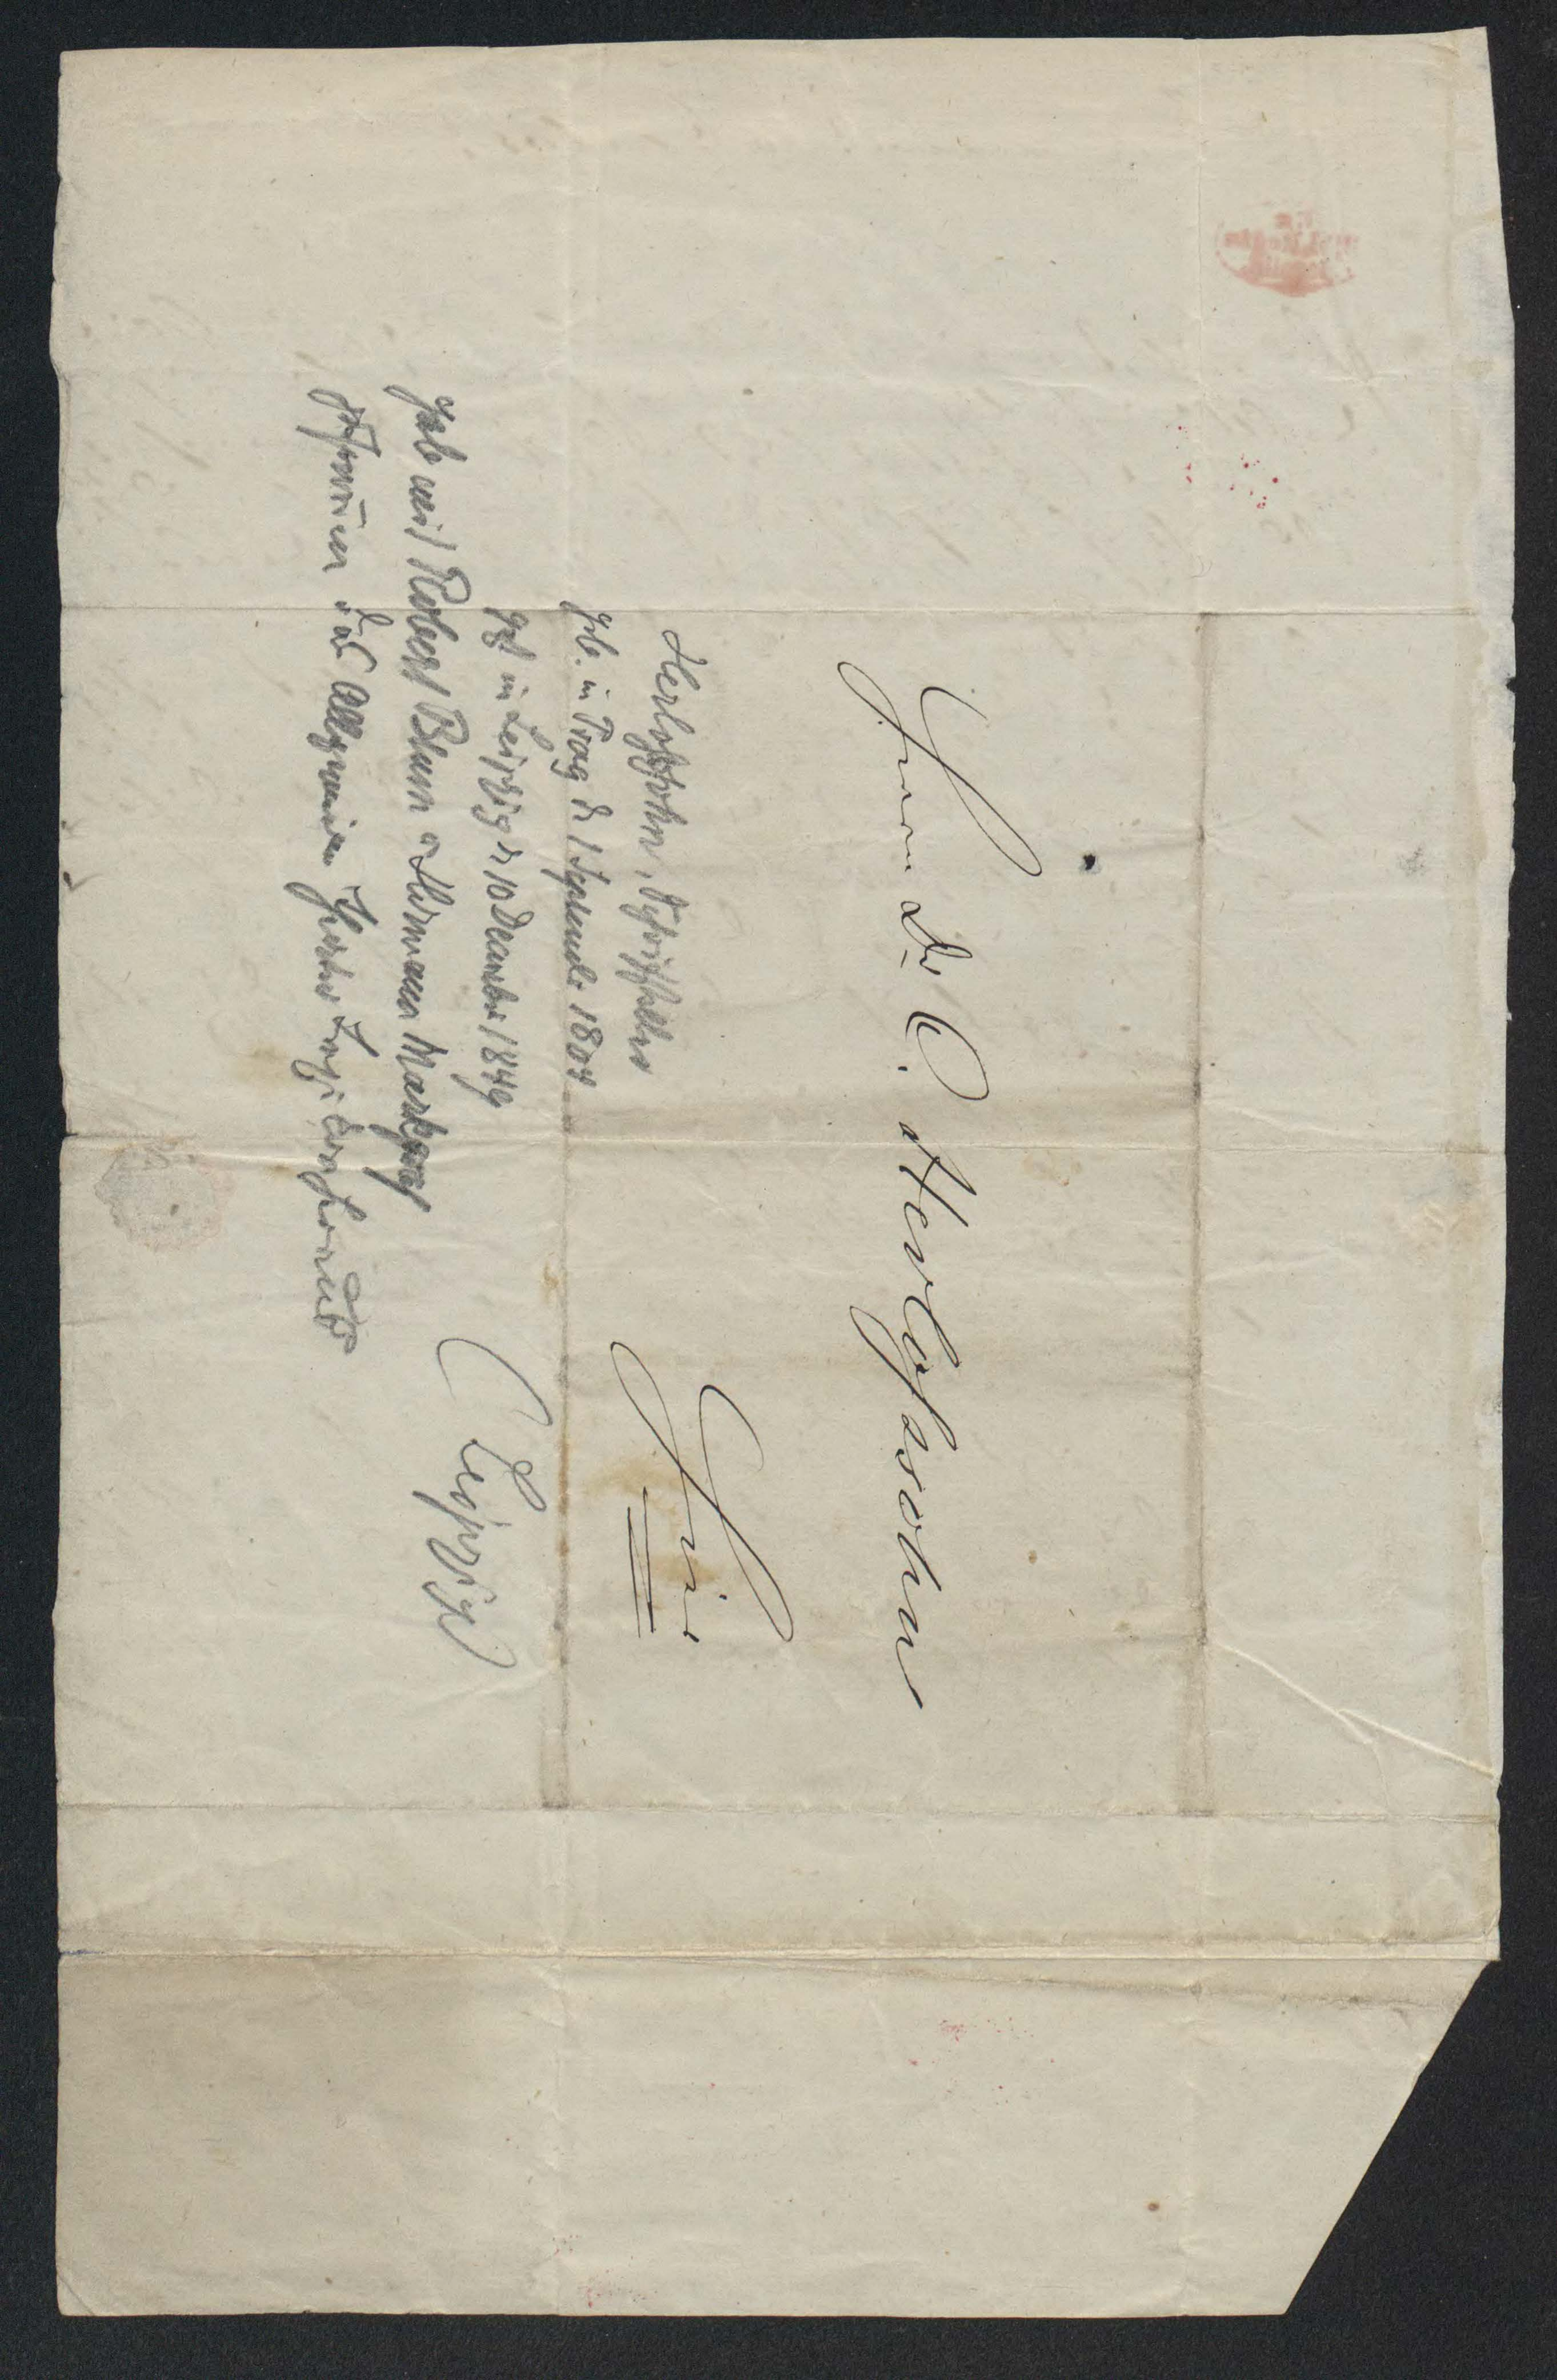 Herrn Dr. C. Herloßsohn
Hier
Herloßsohn, Schriftsteller
geb. in Prag d. 1 September 1804
gest in Leipzig d. 10 December 1849
gab mit Robert Blum u Hermann Marggraf
zusammen das Allgemeine Theater Lexicon heraus
(Leipzig)